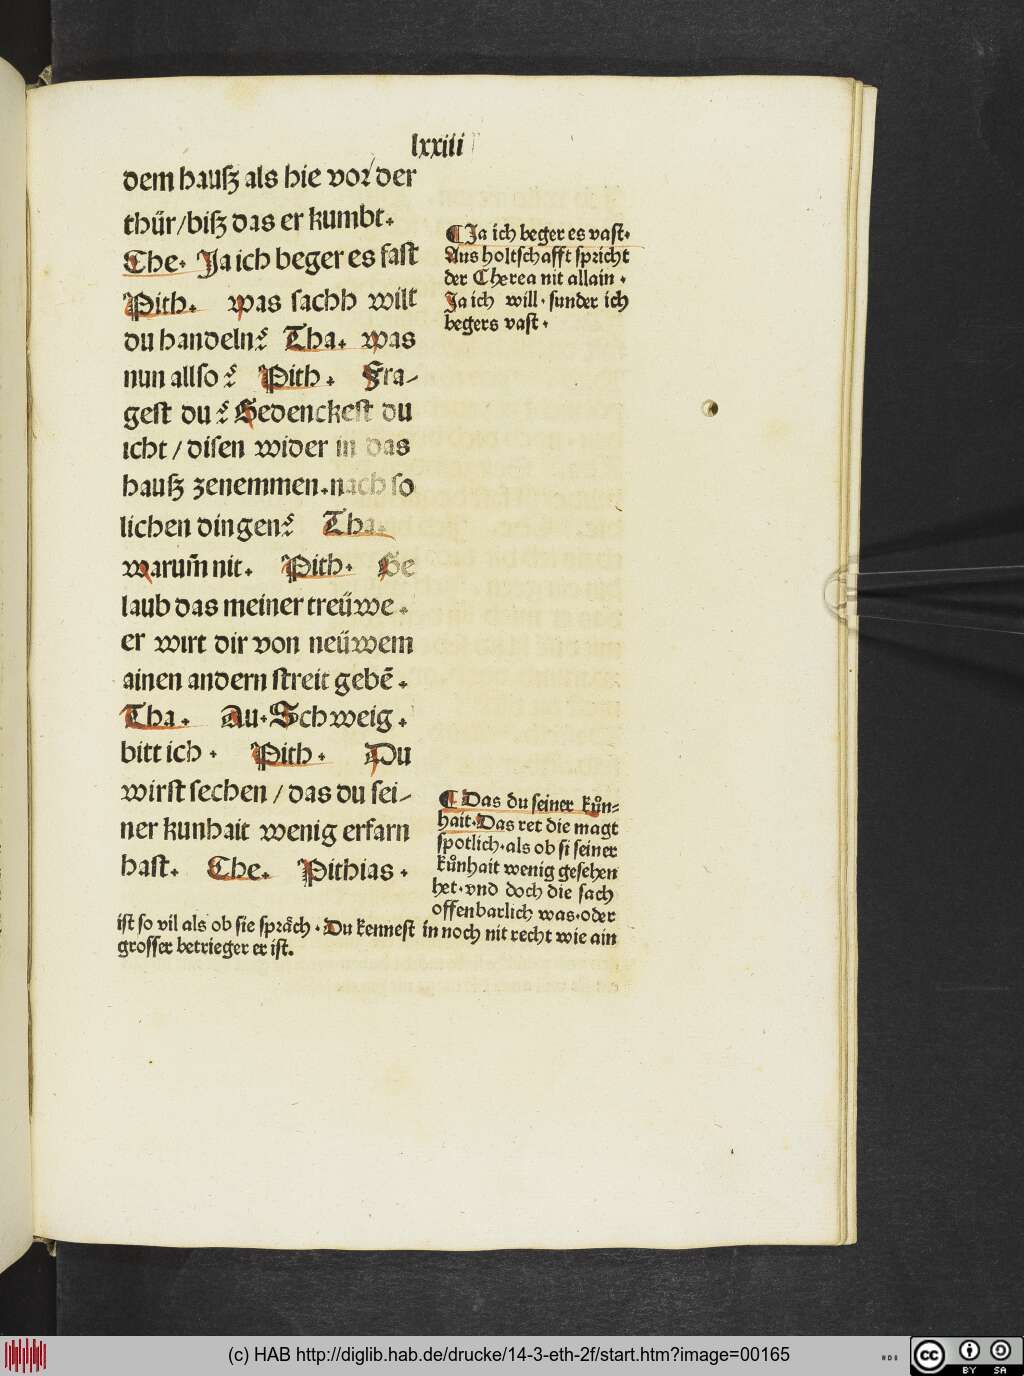 lxxiii
dem hauſz als hie vor der
thür/biſz das er kumbt.
Che. Ja ich beger es faſt
Pith. was ſachh wilt
du handeln? Tha. was
nun allſo? Pith. Fra-
geſt du? Gedenckeſt du
icht/diſen wider in das
hauſz zenemmen.nach ſo
lichen dingen? Tha.
warum̄ nit. Pith. Ge
laub das meiner treüwe.
er wirt dir von neüwem
ainen andern ſtreit gebē.
Tha. Au.Schweig.
bitt ich. Pith. Du
wirſt ſechen/das du ſei-
ner kunhait wenig erfarn
haſt. Che. Pithias.
¶ Ja ich beger es vaſt.
Aus holtſchafft ſpricht
der Cherea nit allain.
Ja ich will.ſunder ich
begers vaſt.
¶ Das du ſeiner kuͦn=
hait.Das ret die magt
ſpotlich.als ob ſi ſeiner
kuͦnhait wenig geſehen
het.vnd doch die ſach
offenbarlich was.oder
iſt ſo vil als ob ſie ſpraͤch.Du kenneſt in noch nit recht wie ain
groſſer betrieger er iſt.
(c) HAB http://diglib.hab.de/drucke/14-3-eth-2f/start.htm?image=00165
HAB
cc BY SA